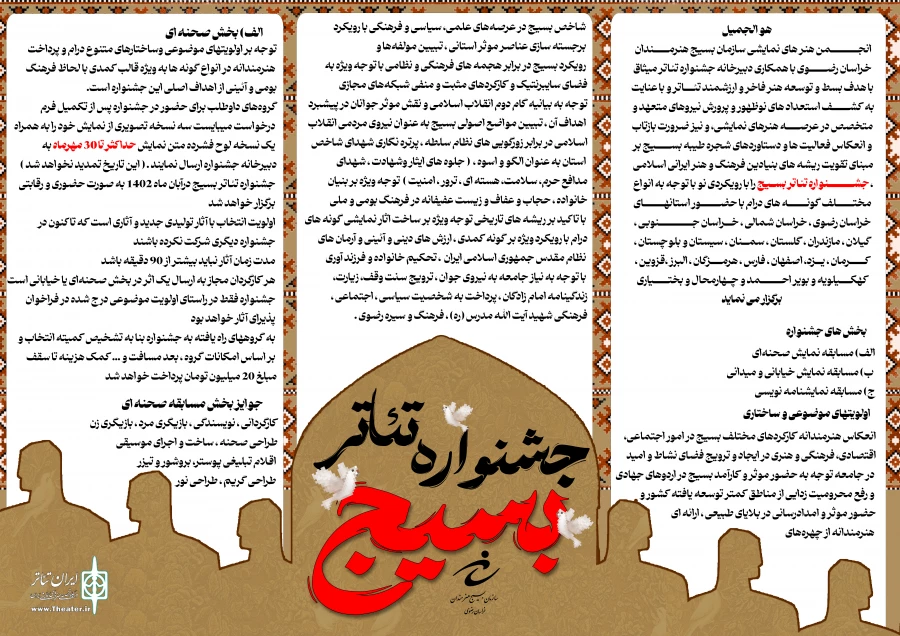 هو الجمیل
انجمـــن هنر های نمایشی سازمان بسیج هنرمنـدان
خراسان رضــوی با همکاری دبیرخانه جشنواره تناتر میثاق
با هدف بسط و توسعه هنر فاخر و ارزشمند تنـاتر و با عنایت
به کشــف استعداد های نوظهور و پرورش نیروهای متعهد و
متخصص در عرصـه هنرهای نمایشی، و نیز ضرورت بازتاب
و انعکاس فعالیت ها و دستاوردهای شجره طیبه بسیج بر
مبنای تقویت ریشه های بنیادین فرهنگ و هنر ایرانی اسلامی
، جشــــنواره تناتر بسیج را با رویکردی نو با توجه به انواع
مختـلف گونــــه های درام با حضور استانهـای
خراسان رضوی، خراسان شمالی ، خراسان جنـــوبی ،
گیلان ، مازندران ، گلستان ، سمنـان ، سیستان و بلوچستان ،
کـــرمان ، یـزد، اصفهان ، فارس ، هرمـزگان ، البرز ،قزوین ،
کهگـــیلویه و بویر احـــمد و چهارمحال و بختیــاری
برگزار می نماید
بخش های جشنواره
الف) مسابقه نمایش صحنه‌ای
ب) مسابقه نمایش خیابانی و میدانی
ج) مسابقه نمایشنامه نویسی
اولویتهای موضوعی و ساختاری
انعکاس هنرمندانه کارکردهای مختلف بسیج در امور اجتماعی،
اقتصادی، فرهنگی و هنری در ایجاد و ترویج فضای نشاط و امید
در جامعه توجه به حضور موثر و کارآمد بسیج در اردوهای جهادی
و رفع محرومیت زدایی از مناطق کمتر توسعه یافته کشور و
حضور موثر و امدادرسانی در بلایای طبیعی ، ارائه ای
هنرمندانه از چهره‌های
شاخص بسیج در عرصه‌های علمی، سیاسی و فرهنگی با رویکرد
برجسته سازی عناصر موثر استانی ، تبیین مولفه‌ها و
رویکرد بسیج در برابر هجمه های فرهنگی و نظامی با توجه ویژه به
فضای سایبرنتیک و کارکردهای مثبت و منفی شبکه‌های مجازی
توجه به بیانیه گام دوم انقلاب اسلامی و نقش موثر جوانان در پیشبرد
اهداف آن ، تبیین مواضع اصولی بسیج به عنوان نیروی مردمی انقلاب
اسلامی در برابر زورگویی های نظام سلطه ، پرتره نگاری شهدای شاخص
استان به عنوان الگو و اسوه . ( جلوه های ایثار وشهادت ، شهدای
مدافع حرم، سلامت، هسته ای ، ترور ، امنیت ) توجه ویژه بر بنیان
خانواده ، حجاب و عفاف و زیست عفیفانه در فرهنگ بومی و ملی
با تاکید بر ریشه های تاریخی توجه ویژه بر ساخت اثار نمایشی گونه های
درام با رویکرد ویژه بر گونه کمدی ، ارزش های دینی و آئینی و آرمان های
نظام مقدس جمهوری اسلامی ایران ، تحکیم خانواده و فرزند آوری
با توجه به نیاز جامعه به نیروی جوان ، ترویج سنت وقف، زیارت،
زندگینامه امام زادگان ، پرداخت به شخصیت سیاسی ، اجتماعی ،
فرهنگی شهید آیت الله مدرس (ره) ، فرهنگ و سیره رضوی .
جشنواره تئاتر
بسیج
سازمان بسیج هنرمندان
خراسان رضوی
الف) بخش صحنه ای
توجه بر اولویتهای موضوعی وساختارهای متنوع درام و پرداخت
هنرمندانه در انواع گونه ها به ویژه قالب کمدی با لحاظ فرهنگ
بومی و آئینی از اهداف اصلی این جشنواره است.
گروه‌های داوطلب برای حضور در جشنواره پس از تکمیل فرم
درخواست میبایست سه نسخه تصویری از نمایش خود را به همراه
یک نسخه لوح فشرده متن نمایش حداکثر تا 30 مهرماه به
دبیرخانه جشنواره ارسال نمایند . ( این تاریخ تمدید نخواهد شد )
جشنواره تناتر بسیج درآبان ماه 1402 به صورت حضوری و رقابتی
برگزار خواهد شد
اولویت انتخاب با آثار تولیدی جدید و آثاری است که تاکنون در
جشنواره دیگری شرکت نکرده باشند
مدت زمان آثار نباید بیشتر از 90 دقیقه باشد
هر کارگردان مجاز به ارسال یک اثر در بخش صحنه‌ای یا خیابانی است
جشنواره فقط در راستای اولویت موضوعی درج شده در فراخوان
پذیرای آثار خواهد بود
به گروههای راه یافته به جشنواره بنا به تشخیص کمیته انتخاب و
بر اساس امکانات گروه ، بعد مسافت و ... کمک هزینه تا سقف
مبلغ 20 میلیون تومان پرداخت خواهد شد
جوایز بخش مسابقه صحنه ای
کارگردانی ، نویسندگی ، بازیگری مرد ، بازیگری زن
طراحی صحنه ، ساخت و اجرای موسیقی
اقلام تبلیغی پوستر، بروشور و تیزر
طراحی گریم ، طراحی نور
ایران تئاتر
www.Theater.ir